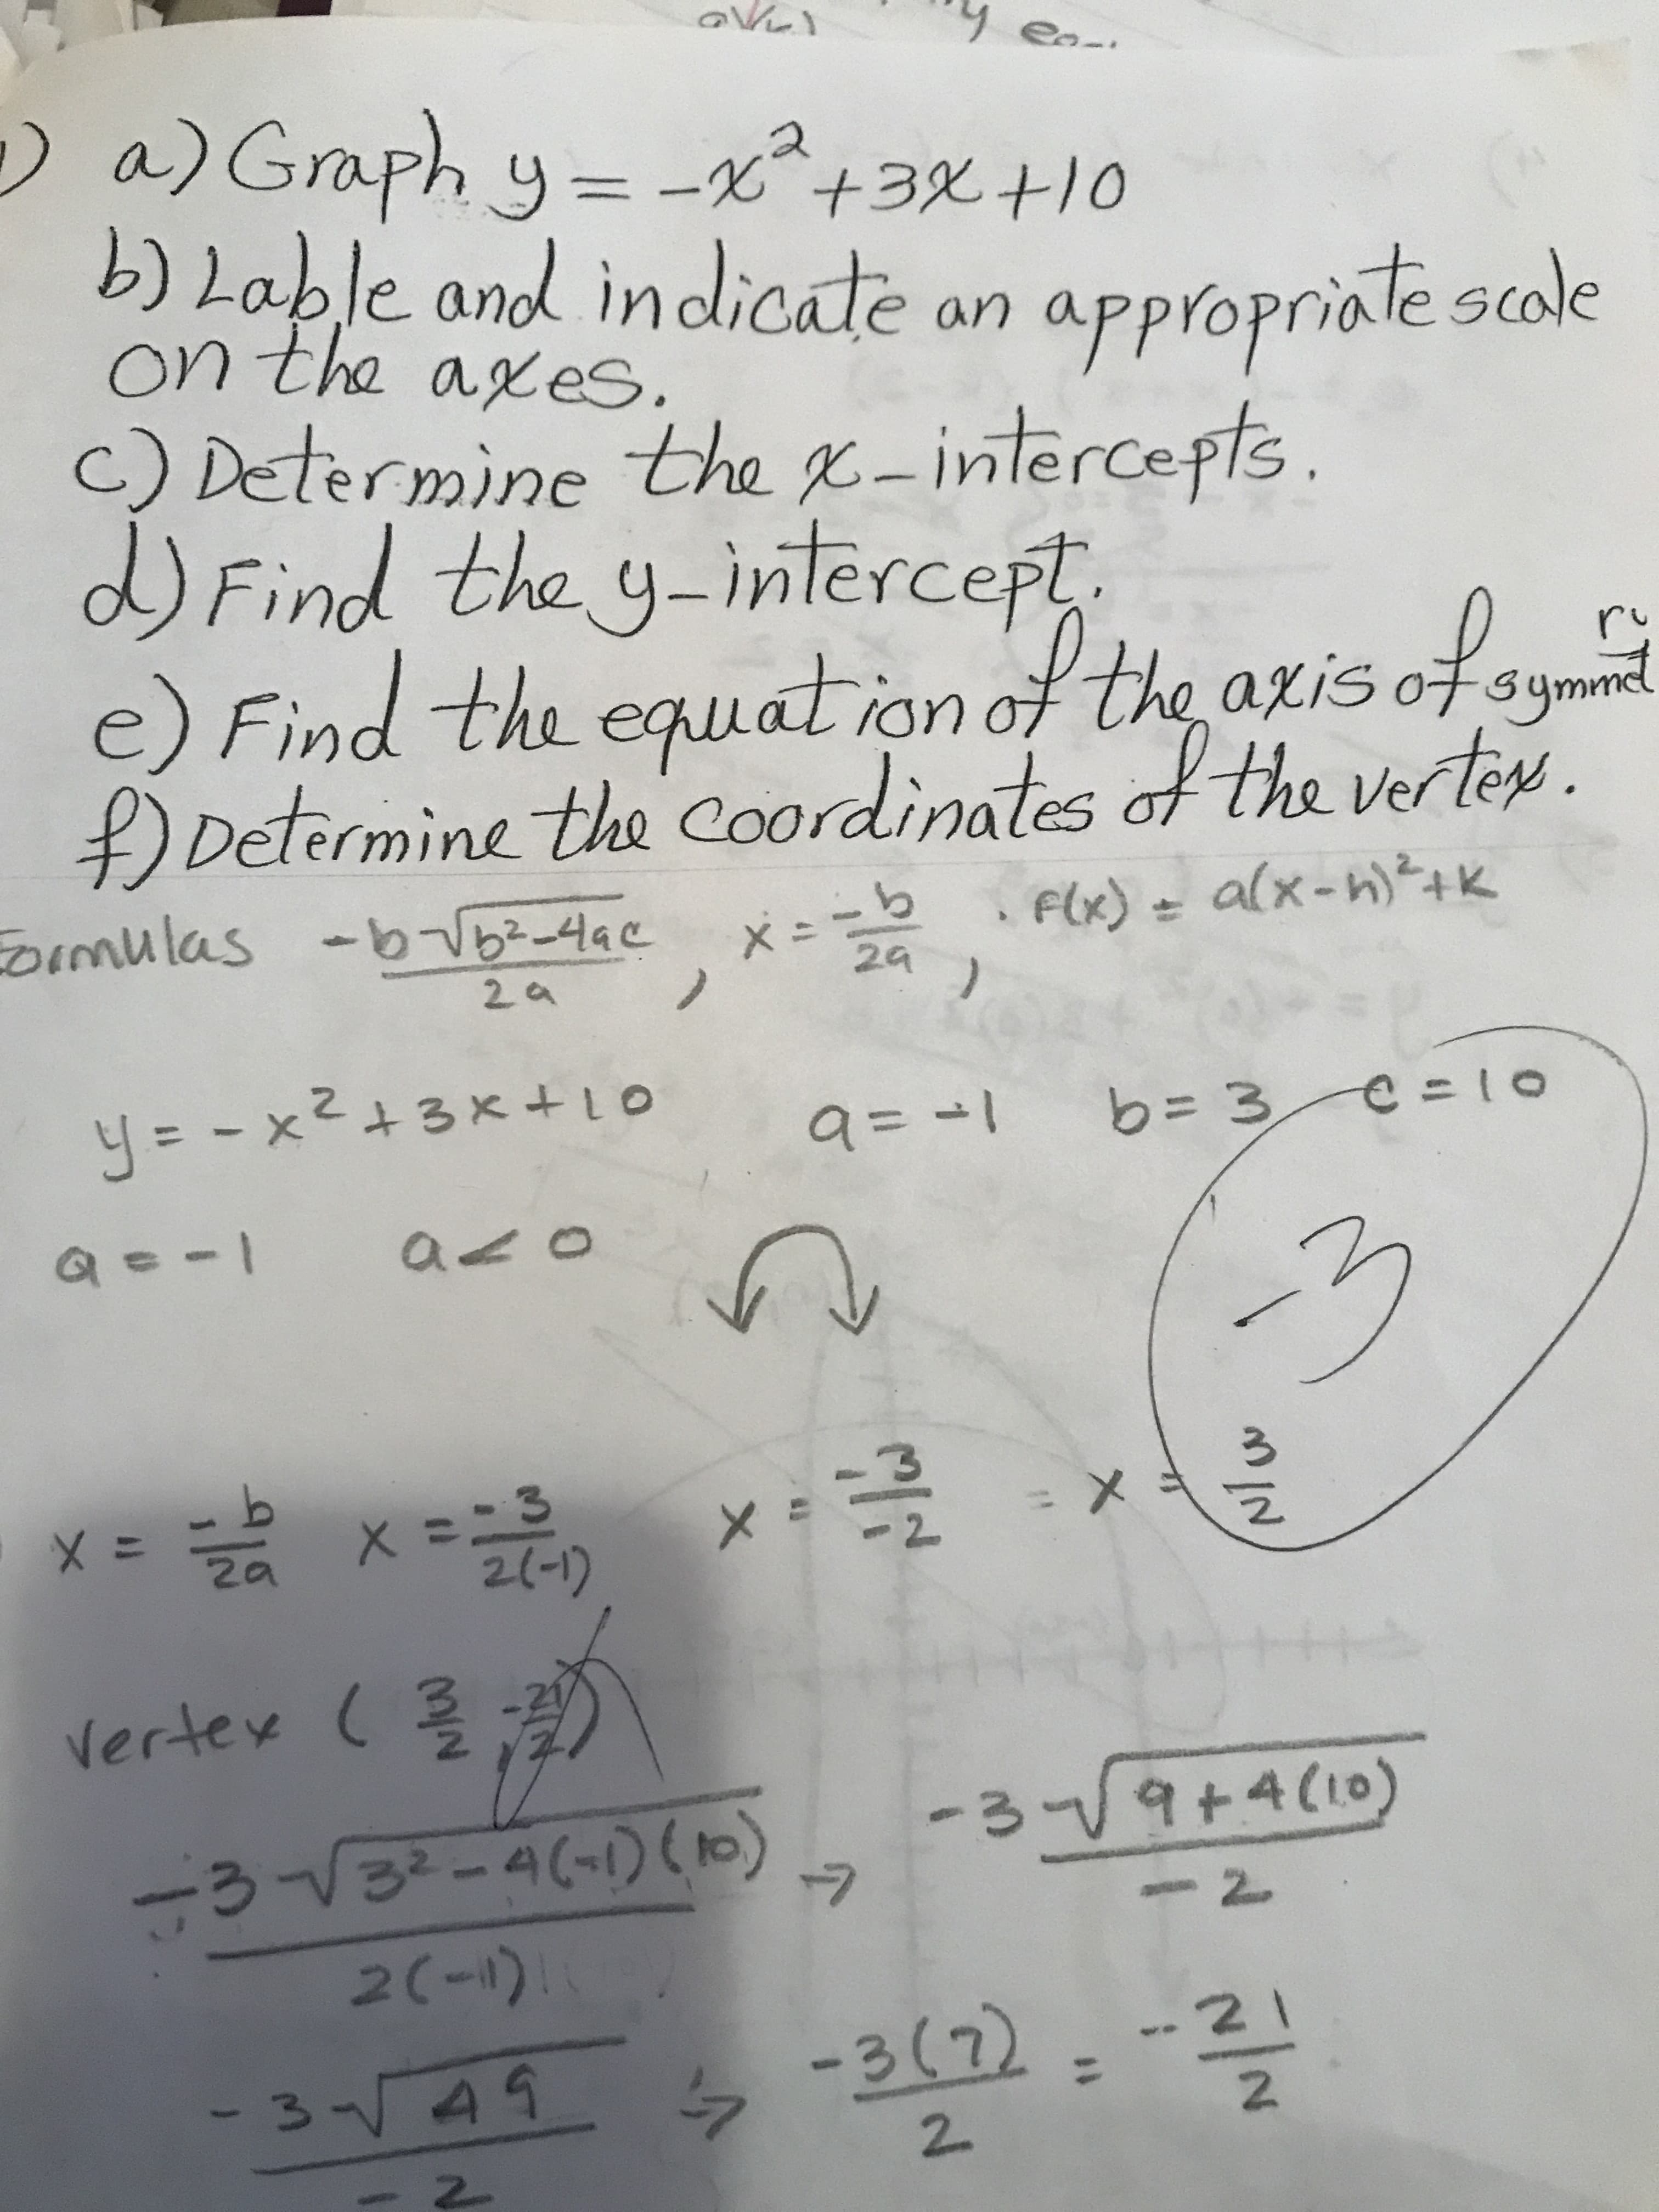 1) a) Graph y = -x² + 3x + 10
b) Lable and indicate an appropriate scale
on the axes.
c) Determine the x-intercepts.
d) Find the y-intercept.
e) Find the equation of the axis of symmetry
f) Determine the coordinates of the vertex.
Formulas -b√(b²-4ac) / 2a , x = -b/2a , . F(x) = a(x-h)²+k
y = -x² + 3x + 10 a = -1 b = 3 c = 10
a = -1 a < 0
-3
x = -b/2a x = -3/2(-1) x = -3/-2 = x = 3/2
vertex ( 3/2 , -21/2 )
-3√(3²-4(-1)(10)) / 2(-1) → -3√(9+4(10)) / -2
-3√49 / -2 → -3(7)/2 = -21/2